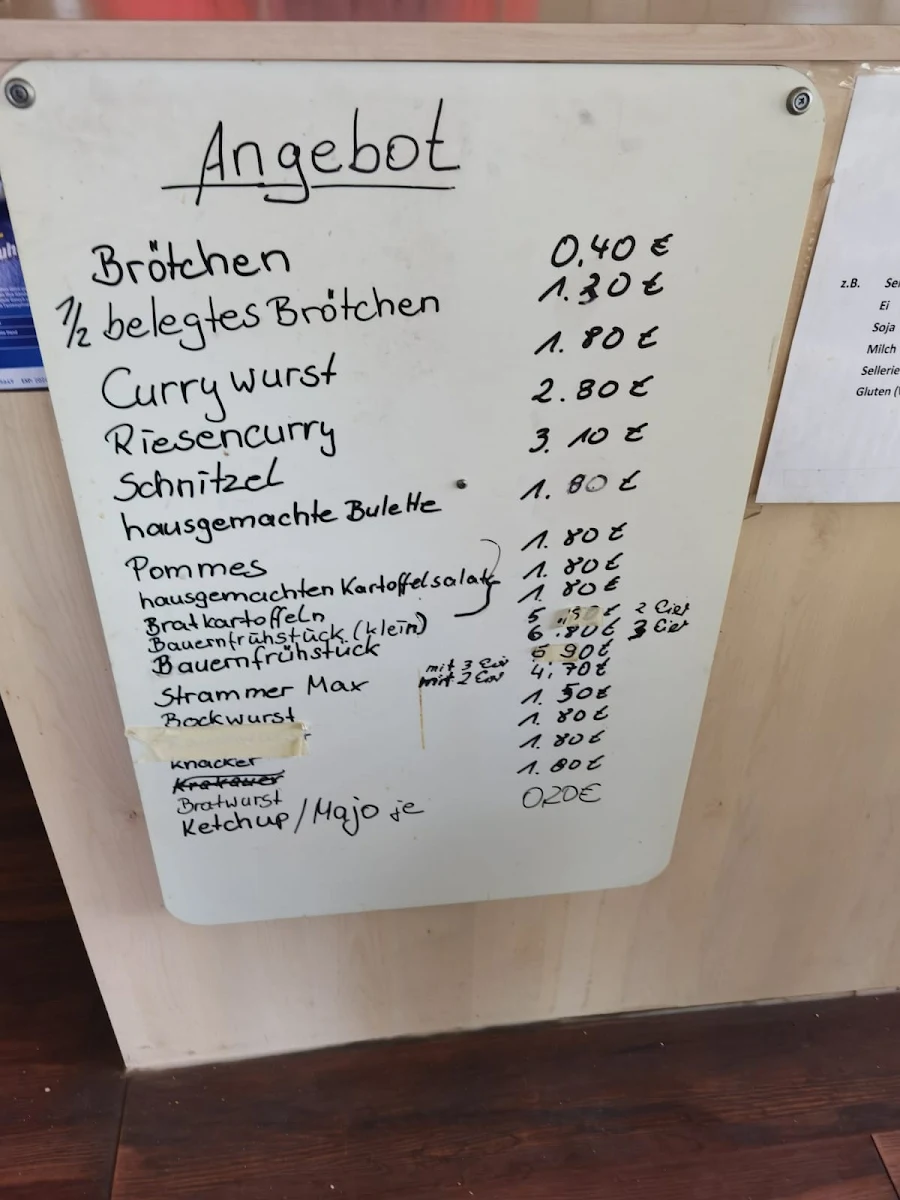 Angebot
Brötchen 0,40 €
1/2 belegtes Brötchen 1.30 €
Currywurst 1.80 €
Riesencurry 2.80 €
Schnitzel 3.10 €
hausgemachte Bulette 1.80 €
Pommes 1.80 €
hausgemachten Kartoffelsalat 1.80 €
Bratkartoffeln 1.80 €
Bauernfrühstück (klein) 5 € 2 Eier
Bauernfrühstück 6.80 € 3 Eier
mit 3 Eier 5 90 €
Strammer Max mit 2 Eier 4,70 €
Bockwurst 1.50 €
Knacker 1.80 €
Krakauer 1.80 €
Bratwurst 1.80 €
Ketchup/Majo je 0,20 €
z.B.
Ei
Soja
Milch
Sellerie
Gluten